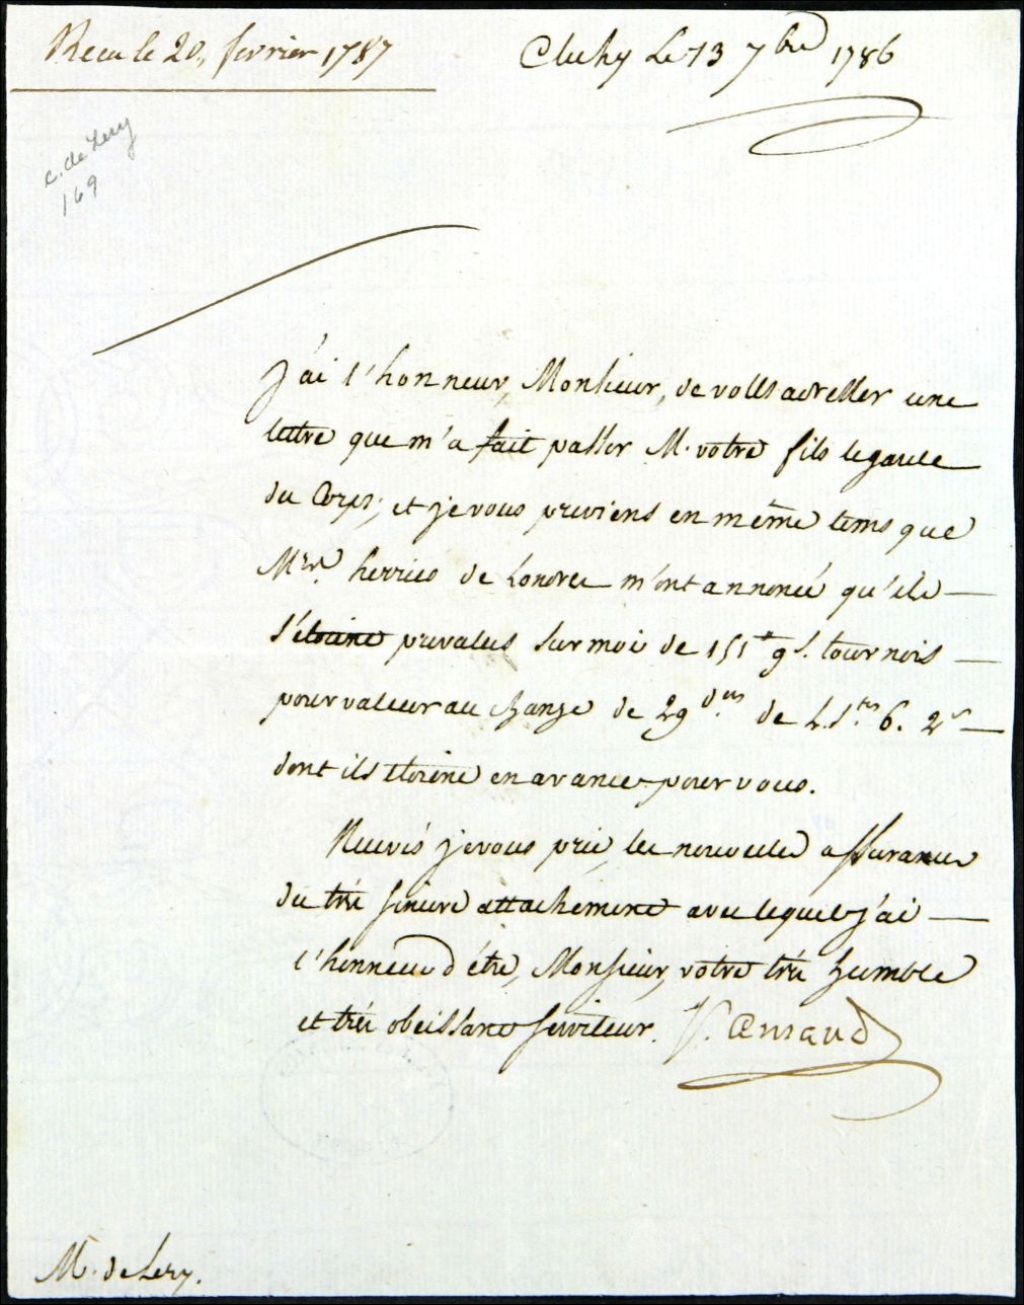 Recu le 20. fevrier 1787
Clichy Le 13 7bre 1786
C. de Lery
169
J'ai l'honneur, Monsieur, de vous adresser une
lettre que m'a fait passer M. votre fils le garde
du Corps; et je vous previens en même tems que
Mrs. herries de Londres m'ont annoncé qu'ils
s'étoient prevalus sur moi de 151# 9s. tournois
pour valeur au change de 29 d.ers de L. S.ters 6. 2s
dont ils étoient en avance pour vous.
Recevés je vous prie les nouvelles assurances
du très sincere attachement avec lequel j'ai
l'honneur d'être, Monsieur, votre très humble
et très obeissant serviteur.
M. de Lery.